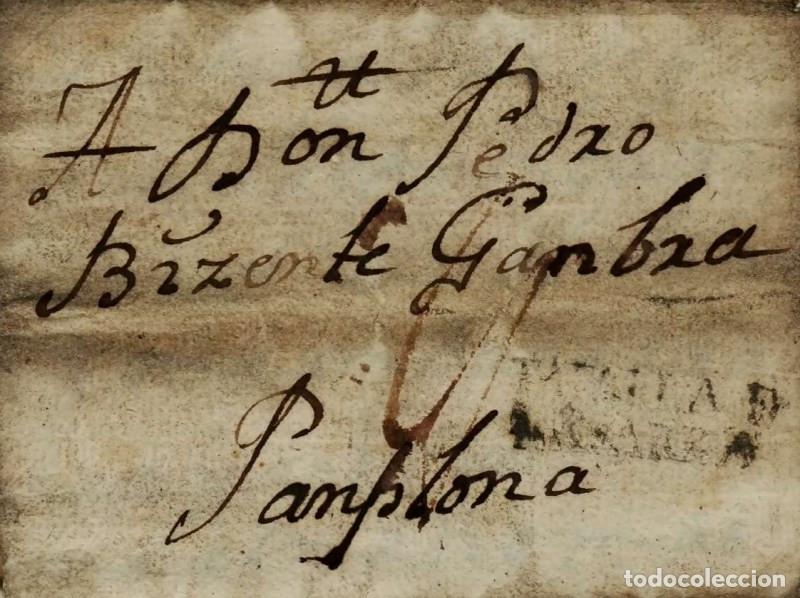 A Don Pedro
Bizente Ganbra
TAFALLA
Panplona
todocoleccion